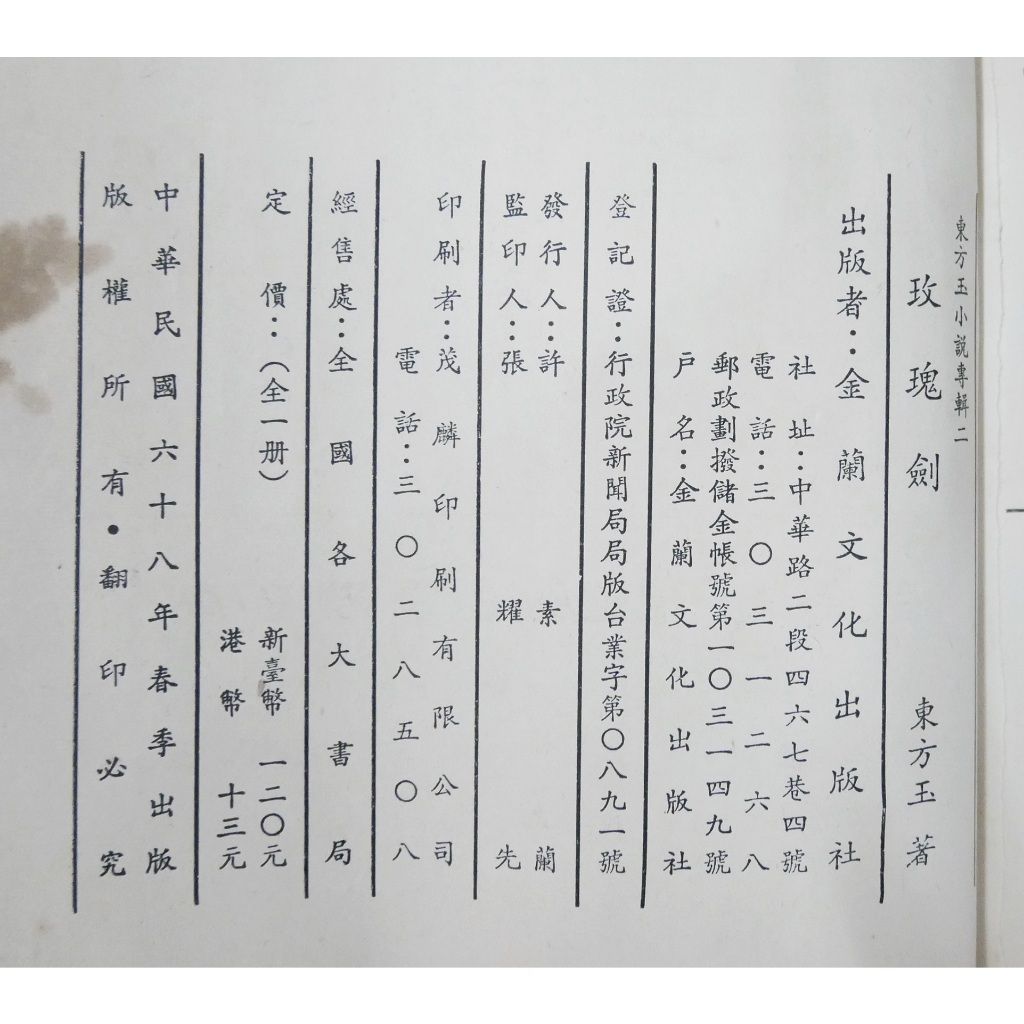 東方玉小說專輯二
玫瑰劍　東方玉著
出版者：金蘭文化出版社
社址：中華路二段四六七巷四號
電話：三〇三一二六八
郵政劃撥儲金帳號第一〇三一四九號
戶名：金蘭文化出版社
登記證：行政院新聞局局版台業字第〇八九一號
發行人：許素蘭
監印人：張耀先
印刷者：茂麟印刷有限公司
電話：三〇二八五〇八
經售處：全國各大書局
定價：（全一册）新臺幣一二〇元
港幣十三元
中華民國六十八年春季出版
版權所有•翻印必究